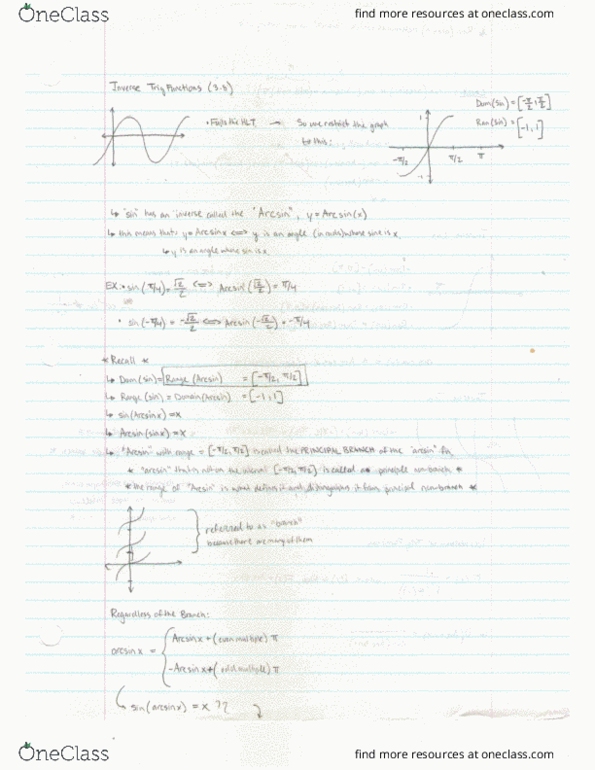 OneClass
find more resources at oneclass.com
Inverse Trig Functions (3.5)
Dom(sin) = [-π/2, π/2]
Ran(sin) = [-1, 1]
• Fails the HLT → So we restrict the graph
to this:
-π/2 π/2 π
-1
↳ "sin" has an inverse called the "Arcsin", y = Arcsin(x)
↳ this means that y = Arcsinx ⟺ y is an angle (in rads) whose sine is x
↳ y is an angle whose sin is x.
EX. • sin(π/4) = √2/2 ⟺ Arcsin(√2/2) = π/4
• sin(-π/4) = -√2/2 ⟺ Arcsin(-√2/2) = -π/4
* Recall *
↳ Dom(sin) = Range(Arcsin) = [-π/2, π/2]
↳ Range(sin) = Domain(Arcsin) = [-1, 1]
↳ sin(Arcsinx) = x
↳ Arcsin(sinx) = x
↳ "Arcsin" with range = [-π/2, π/2] is called the PRINCIPAL BRANCH of the "arcsin" fn
* "arcsin" that is not on the interval [-π/2, π/2] is called a principle non-branch *
* the range of "Arcsin" is what defines it and distinguishes it from principal non-branch *
referred to as "branch"
because there are many of them
Regardless of the Branch:
arcsinx =
Arcsinx + (even multiple) π
-Arcsinx + (odd multiple) π
sin(arcsinx) = x ??
OneClass
find more resources at oneclass.com